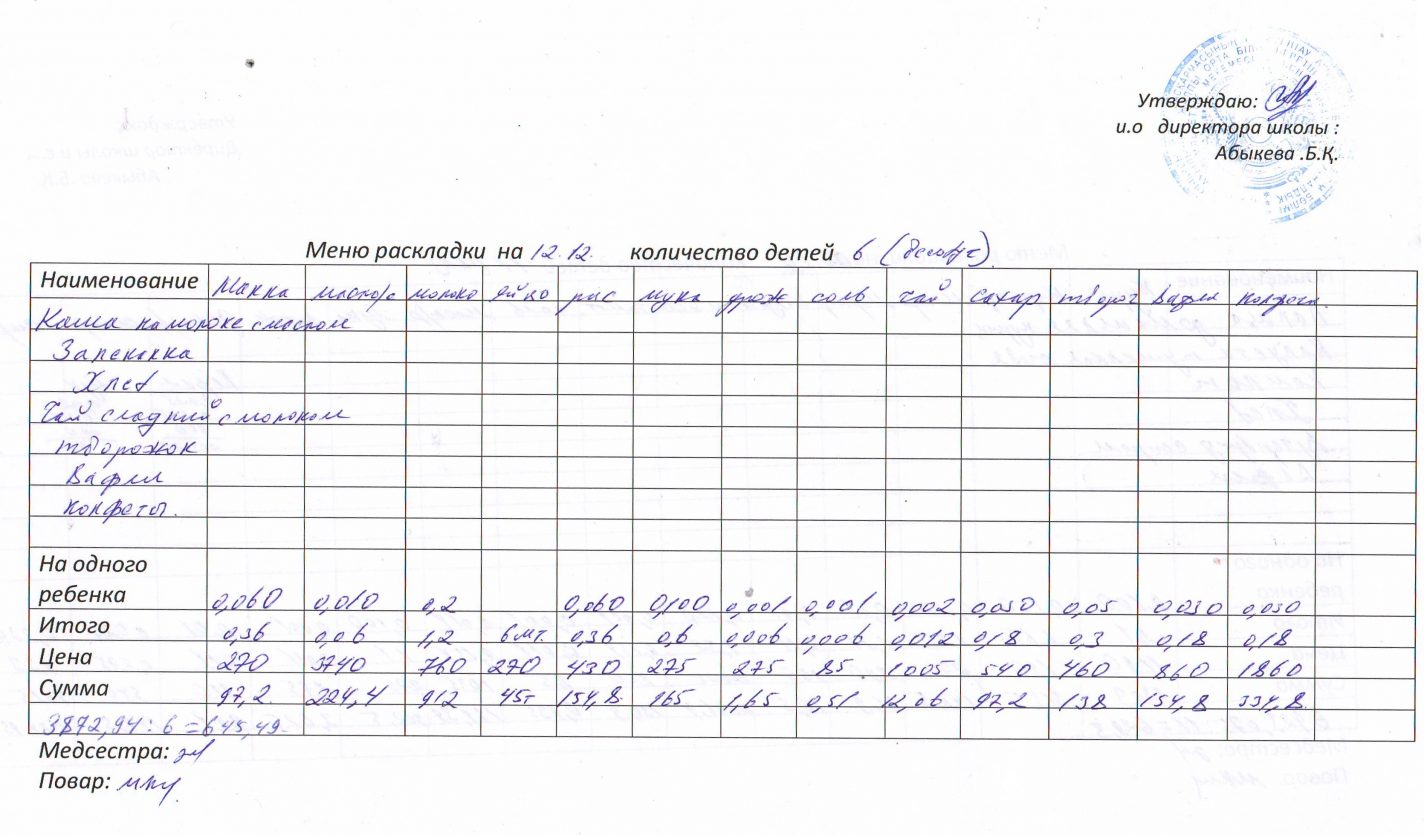 Утверждаю:
и.о директора школы :
Абыкева .Б.Қ.
Меню раскладки на 12.12. количество детей 6
Наименование Манка масло молоко яйцо рис мука дрож соль чай сахар творог вафли конфеты.
Каша на молоке с маслом
Запеканка
Хлеб
Чай сладкий с молоком
творожок
Вафли
конфеты.
На одного
ребенка 0,060 0,010 0,2 0,060 0,100 0,001 0,001 0,002 0,030 0,05 0,030 0,030
Итого 0,36 0,06 1,2 6 шт. 0,36 0,6 0,006 0,006 0,012 0,18 0,3 0,18 0,18
Цена 270 3740 760 270 430 275 275 85 1005 540 460 860 1860
Сумма 97,2 224,4 912 45т 154,8 165 1,65 0,51 12,06 97,2 138 154,8 334,8
3872,94 : 6 = 645,49
Медсестра:
Повар: